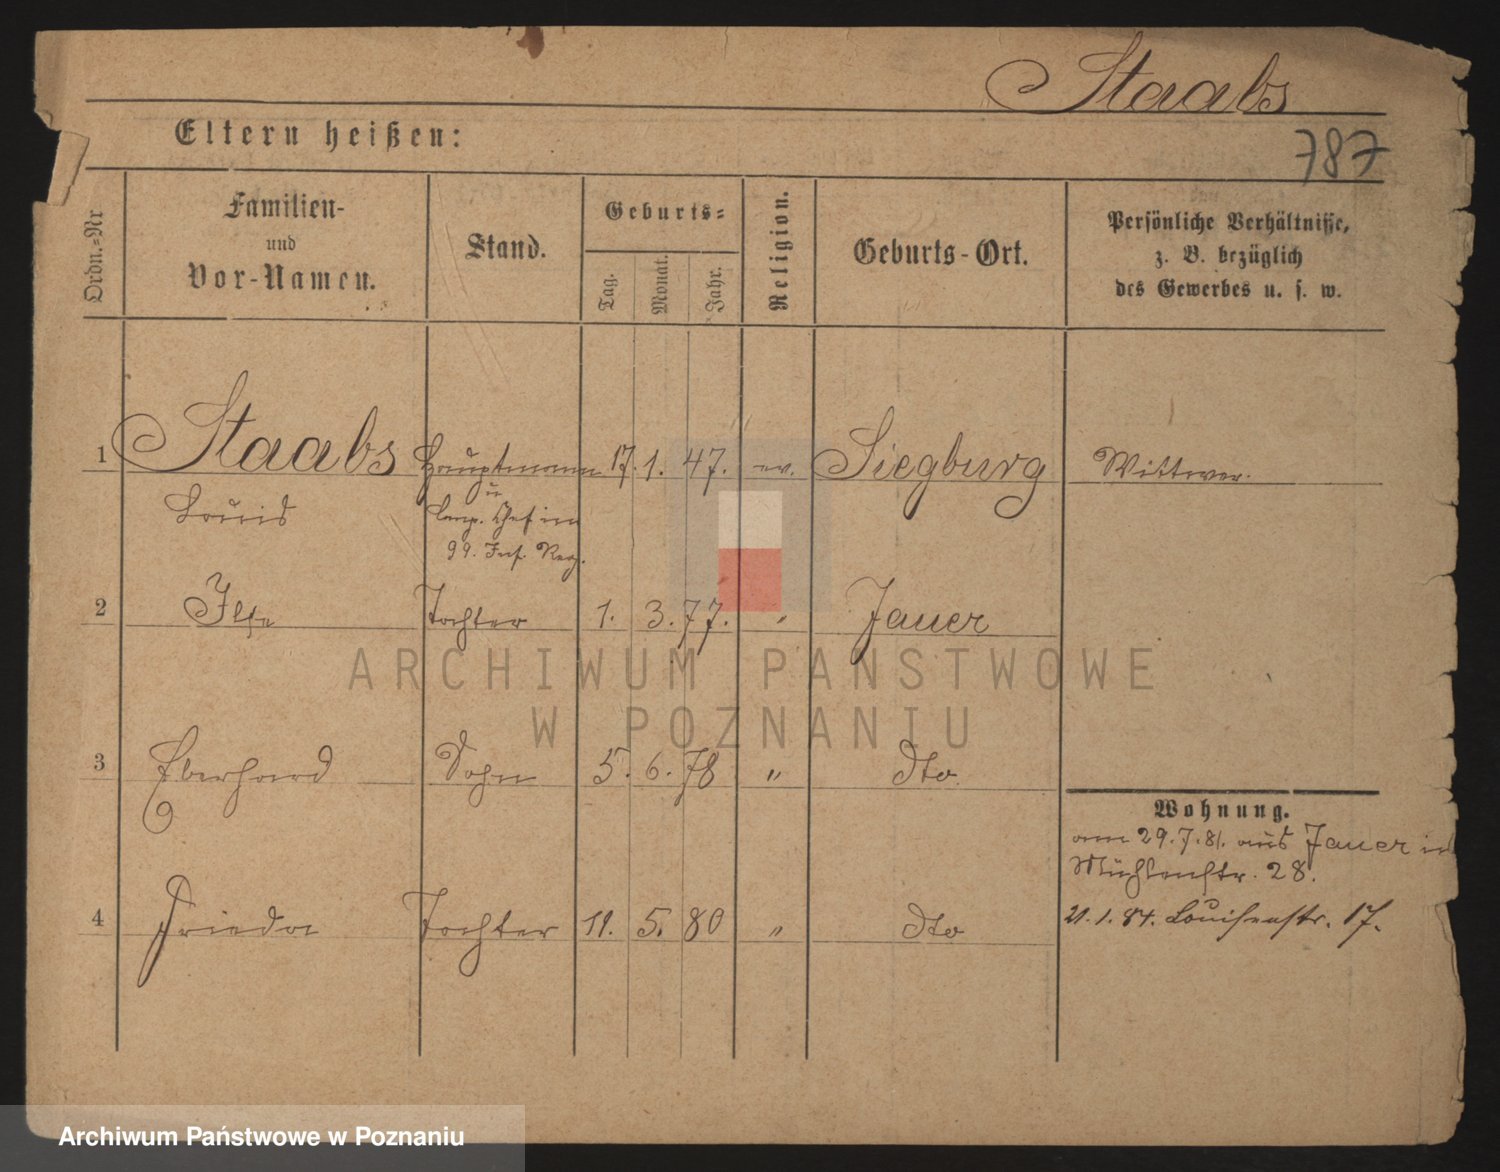 Staabs
Eltern heißen:
787
Ordn.=Nr
Familien-
und
Vor-Namen.
Stand.
Geburts=
Tag.
Monat.
Jahr.
Religion.
Geburts-Ort.
Persönliche Verhältnisse,
z. B. bezüglich
des Gewerbes u. s. w.
1 Staabs Hauptmann 17. 1. 47. ev. Siegburg Wittwer.
Louis
u
Comp. Chef im
99. Inf. Reg.
2 Ilse Tochter 1. 3. 77. " Jauer
ARCHIWUM PAŃSTWOWE
W POZNANIU
3 Eberhard Sohn 5. 6. 78 " dto.
Wohnung.
am 29.7.81. aus Jauer in
Mühlenstr. 28.
4 Frieda Tochter 11. 5. 80 " dto
21.1.84. Louisenstr. 17.
Archiwum Państwowe w Poznaniu